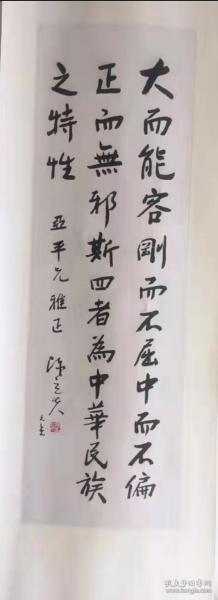 大而能容剛而不屈中而不偏
正而無邪斯四者為中華民族
之特性
亞平兄雅正
陳立夫